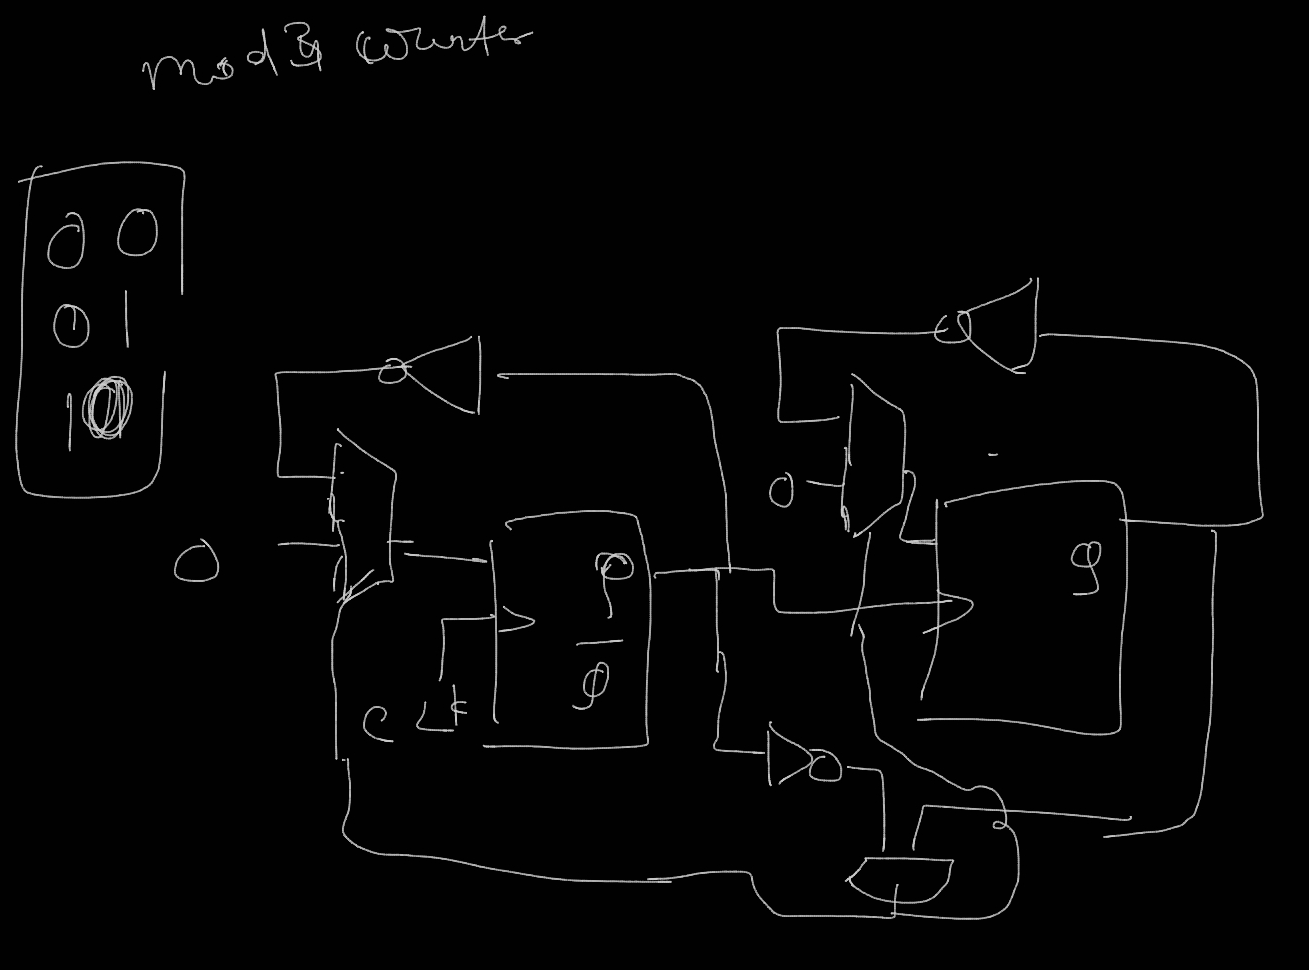 mod 3 counter
0 0
0 1
1 0
0
0
Q
Q
Q̅
clk